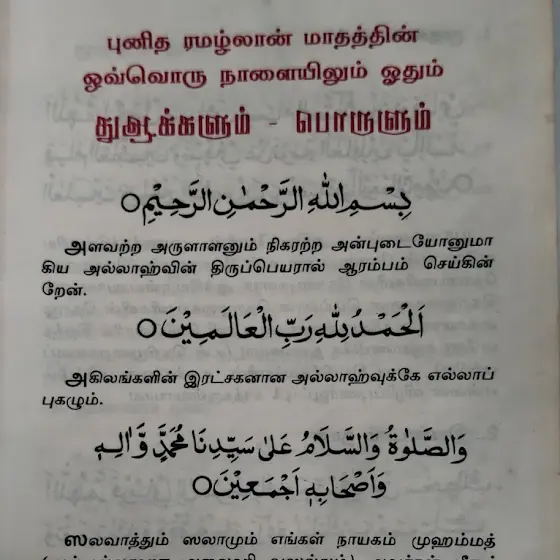 புனித ரமழ்லான் மாதத்தின்
ஒவ்வொரு நாளையிலும் ஓதும்
துஆக்களும் - பொருளும்
بِسْمِ اللهِ الرَّحْمٰنِ الرَّحِيْمِ○
அளவற்ற அருளாளனும் நிகரற்ற அன்புடையோனுமா
கிய அல்லாஹ்வின் திருப்பெயரால் ஆரம்பம் செய்கின்
றேன்.
اَلْحَمْدُ لِلّٰهِ رَبِّ الْعَالَمِيْنَ○
அகிலங்களின் இரட்சகனான அல்லாஹ்வுக்கே எல்லாப்
புகழும்.
وَالصَّلٰوةُ وَالسَّلَامُ عَلٰى سَيِّدِنَا مُحَمَّدٍ وَّاٰلِهٖ
وَاَصْحَابِهٖ اَجْمَعِيْنَ○
ஸலவாத்தும் ஸலாமும் எங்கள் நாயகம் முஹம்மத்